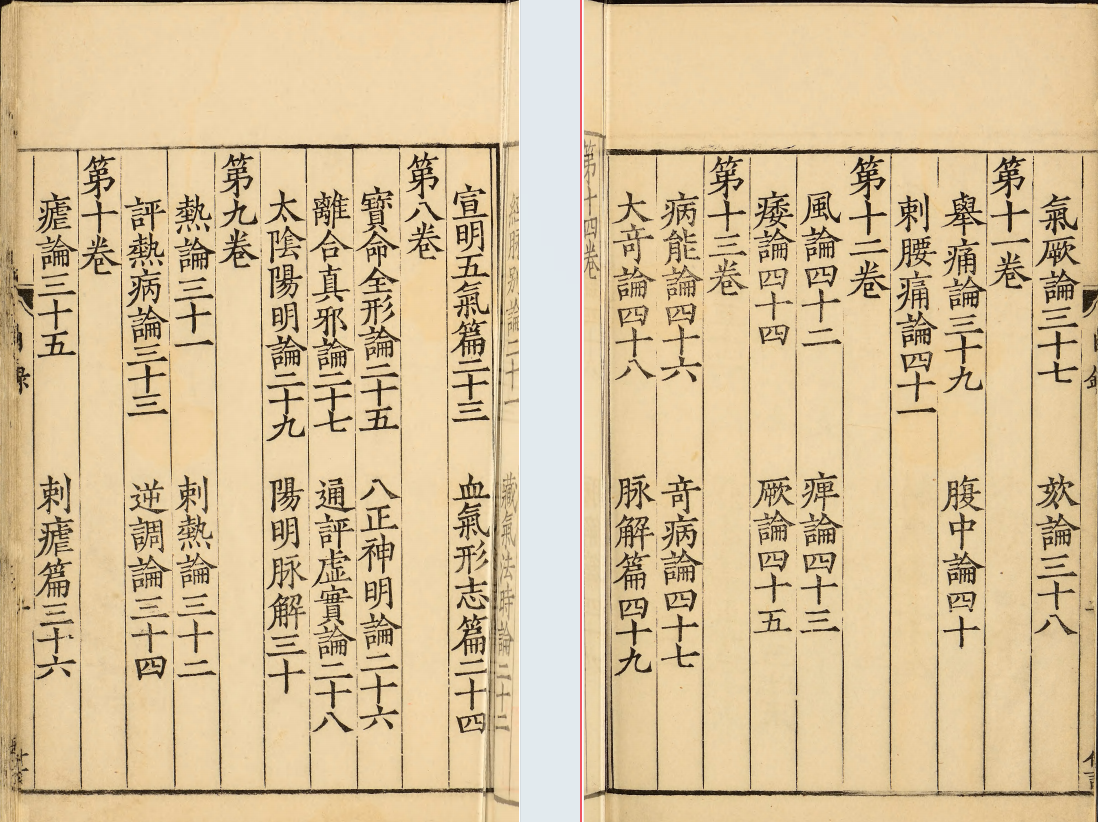 經脉別論二十一 藏氣法時論二十二
宣明五氣篇二十三 血氣形志篇二十四
第八卷
寶命全形論二十五 八正神明論二十六
離合真邪論二十七 通評虛實論二十八
太陰陽明論二十九 陽明脉解三十
第九卷
熱論三十一 刺熱論三十二
評熱病論三十三 逆調論三十四
第十卷
瘧論三十五 刺瘧篇三十六
氣厥論三十七 欬論三十八
第十一卷
舉痛論三十九 腹中論四十
刺腰痛論四十一
第十二卷
風論四十二 痺論四十三
痿論四十四 厥論四十五
第十三卷
病能論四十六 竒病論四十七
大竒論四十八 脉解篇四十九
第十四卷